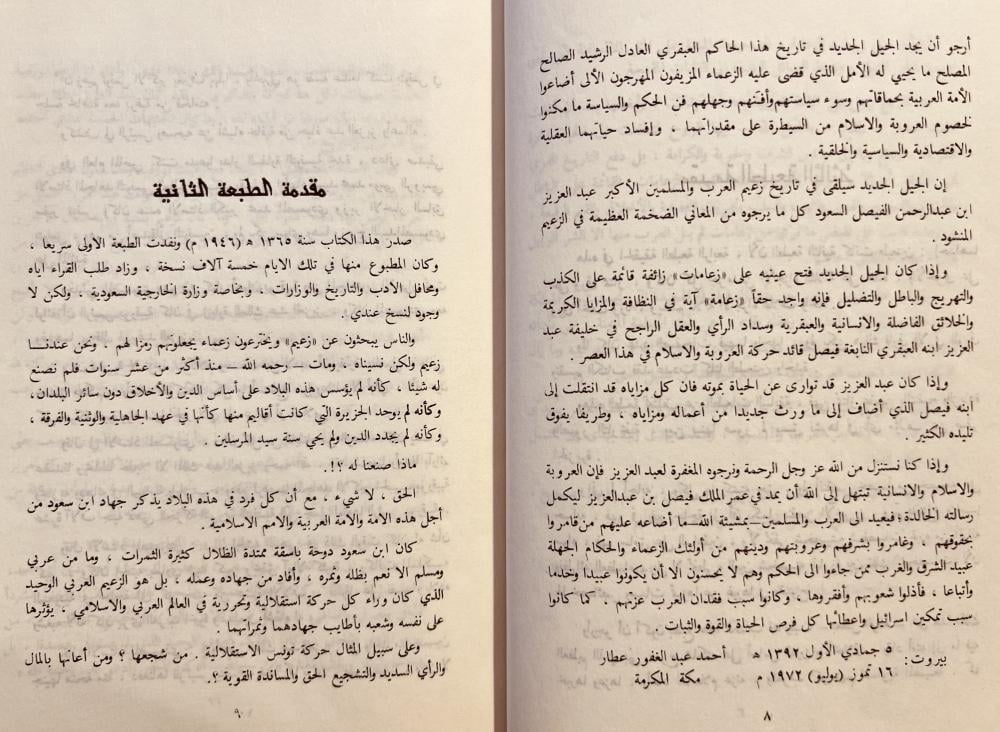 أرجو أن يجد الجيل الجديد في تاريخ هذا الحاكم العبقري العادل الرشيد الصالح
المصلح ما يحيي له الأمل الذي قضى عليه الزعماء المزيفون المهرجون الألى أضاعوا
الأمة العربية بحماقاتهم وسوء سياستهم وأفنهم وجهلهم فن الحكم والسياسة ما مكنوا
لخصوم العروبة والاسلام من السيطرة على مقدراتهما ، وإفساد حياتهما العقلية
والاقتصادية والسياسية والخلقية .
إن الجيل الجديد سيلقى في تاريخ زعيم العرب والمسلمين الأكبر عبد العزيز
ابن عبدالرحمن الفيصل السعود كل ما يرجوه من المعاني الضخمة العظيمة في الزعيم
المنشود .
وإذا كان الجيل الجديد فتح عينيه على «زعامات» زائفة قائمة على الكذب
والتهريج والباطل والتضليل فإنه واجد حقاً «زعامة» آية في النظافة والمزايا الكريمة
والخلائق الفاضلة والانسانية والعبقرية وسداد الرأي والعقل الراجح في خليفة عبد
العزيز ابنه العبقري النابغة فيصل قائد حركة العروبة والاسلام في هذا العصر .
وإذا كان عبد العزيز قد توارى عن الحياة بموته فان كل مزاياه قد انتقلت إلى
ابنه فيصل الذي أضاف إلى ما ورث جديدا من أعماله ومزاياه ، وطريفا يفوق
تليده الكثير .
وإذا كنا نستنزل من الله عز وجل الرحمة ونرجوه المغفرة لعبد العزيز فإن العروبة
والاسلام والانسانية تبتهل إلى الله أن يمد في عمر الملك فيصل بن عبدالعزيز ليكمل
رسالته الخالدة؛ فيعيد الى العرب والمسلمين–بمشيئة الله–ما أضاعه عليهم من قامروا
بحقوقهم ، وغامروا بشرفهم وعروبتهم ودينهم من أولئك الزعماء والحكام الجهلة
عبيد الشرق والغرب ممن جاءوا الى الحكم وهم لا يحسنون الا أن يكونوا عبيدا وخدما
وأتباعا ، فأذلوا شعوبهم وأفقروها ، وكانوا سبب فقدان العرب عزتهم . كما كانوا
سبب تمكين اسرائيل واعطائها كل فرص الحياة والقوة والثبات .
بيروت : ٥ جمادي الأول ١٣٩٢ ه أحمد عبد الغفور عطار
١٦ تموز (يوليو) ١٩٧٢ م مكة المكرمة
٨
مقدمة الطبعة الثانية
صدر هذا الكتاب سنة ١٣٦٥ ه (١٩٤٦ م) ونفدت الطبعة الأولى سريعا ،
وكان المطبوع منها في تلك الايام خمسة آلاف نسخة ، وزاد طلب القراء اياه
ومحافل الأدب والتاريخ والوزارات ، وبخاصة وزارة الخارجية السعودية ، ولكن لا
وجود لنسخ عندي .
والناس يبحثون عن «زعيم» ويخترعون زعماء يجعلونهم رمزا لهم ، ونحن عندنا
زعيم ولكن نسيناه ، ومات – رحمه الله – منذ أكثر من عشر سنوات فلم نصنع
له شيئا ، كأنه لم يؤسس هذه البلاد على أساس الدين والأخلاق دون سائر البلدان،
وكأنه لم يوحد الجزيرة التي كانت أقاليم منها كأنها في عهد الجاهلية والوثنية والفرقة ،
وكأنه لم يجدد الدين ولم يحي سنة سيد المرسلين .
ماذا صنعنا له ؟!.
الحق ، لا شيء ، مع أن كل فرد في هذه البلاد يذكر جهاد ابن سعود من
أجل هذه الامة والامة العربية والامم الاسلامية .
كان ابن سعود دوحة باسقة ممتدة الظلال كثيرة الثمرات ، وما من عربي
ومسلم الا نعم بظله وثمره ، وأفاد من جهاده وعمله ، بل هو الزعيم العربي الوحيد
الذي كان وراء كل حركة استقلالية وتحررية في العالم العربي والاسلامي ، يؤثرها
على نفسه وشعبه بأطايب جهادهما وثمراتهما .
وعلى سبيل المثال حركة تونس الاستقلالية . من شجعها ؟ ومن أعانها بالمال
والرأي السديد والتشجيع الحق والمساندة القوية ؟.
٩